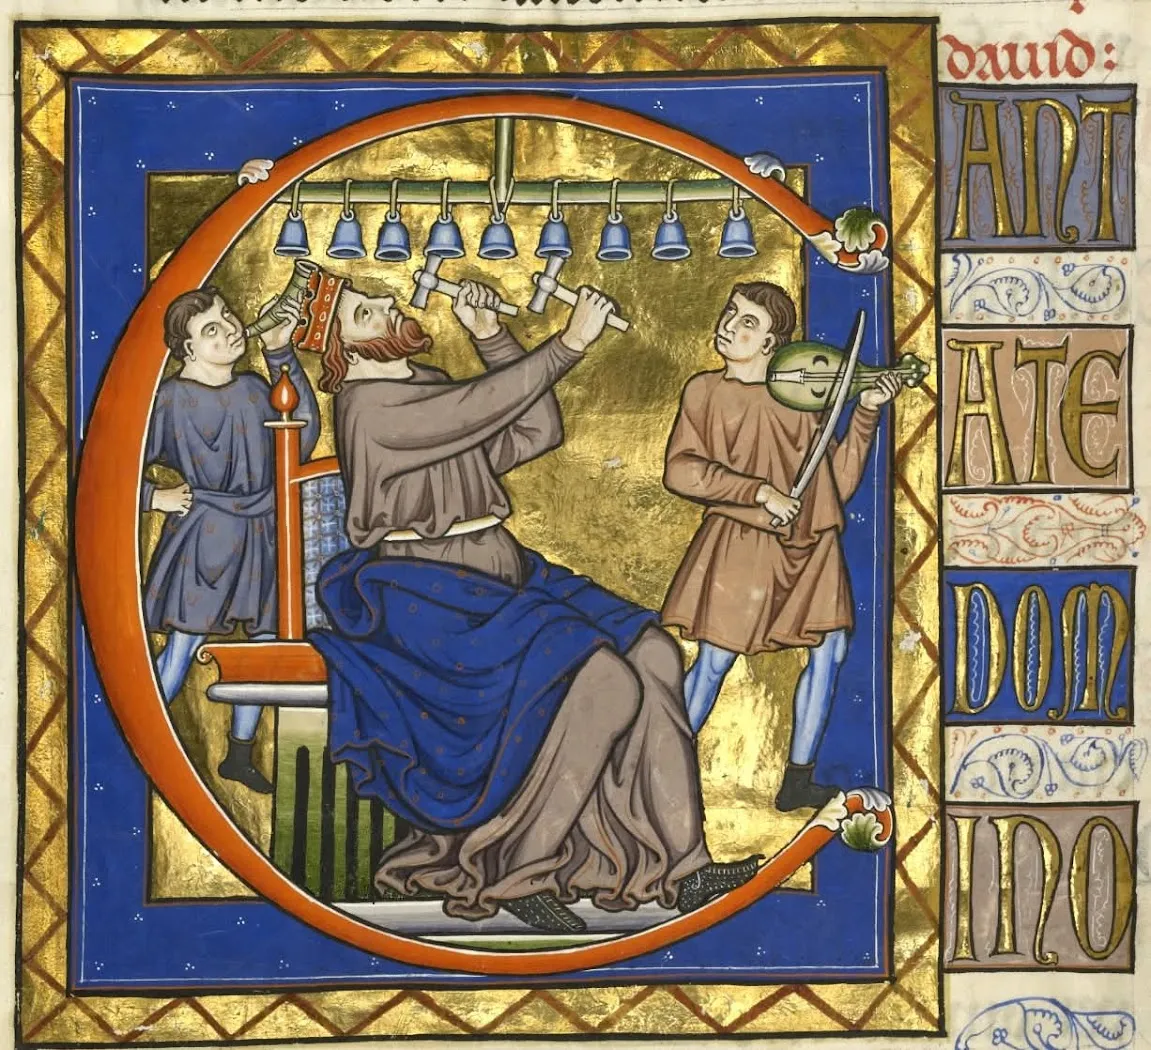 dauid:
CANT
ATE
DOM
INO